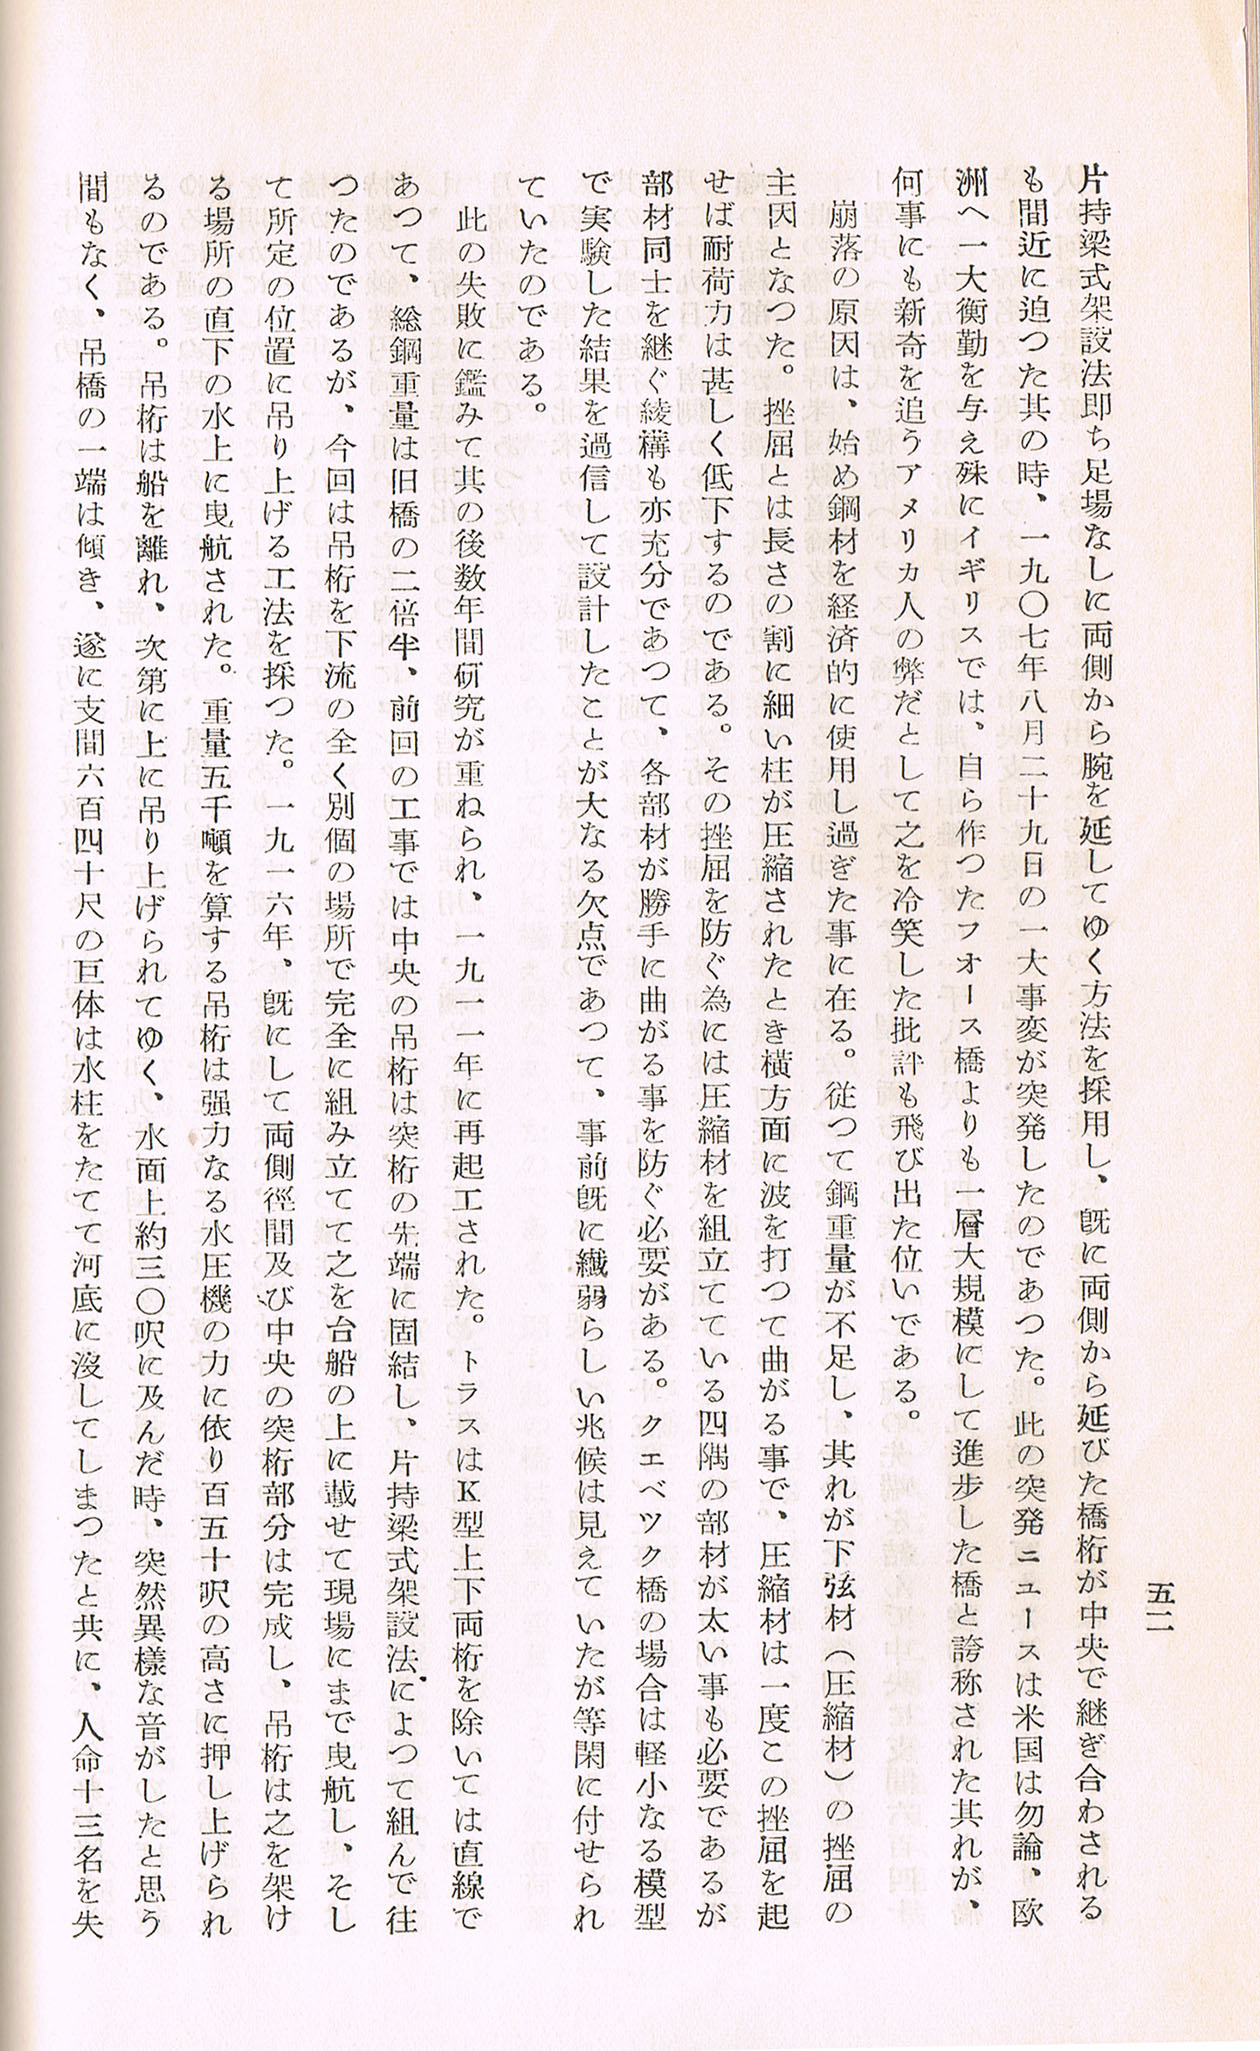 五二
片持梁式架設法即ち足場なしに両側から腕を延してゆく方法を採用し、既に両側から延びた橋桁が中央で継ぎ合わされる
も間近に迫つた其の時、一九〇七年八月二十九日の一大事変が突発したのであつた。此の突発ニュースは米国は勿論、欧
洲へ一大衡動を与え殊にイギリスでは、自ら作つたフオース橋よりも一層大規模にして進歩した橋と誇称された其れが、
何事にも新奇を追うアメリカ人の弊だとして之を冷笑した批評も飛び出た位いである。
崩落の原因は、始め鋼材を経済的に使用し過ぎた事に在る。従つて鋼重量が不足し、其れが下弦材（圧縮材）の挫屈の
主因となつた。挫屈とは長さの割に細い柱が圧縮されたとき横方面に波を打つて曲がる事で、圧縮材は一度この挫屈を起
せば耐荷力は甚しく低下するのである。その挫屈を防ぐ為には圧縮材を組立てている四隅の部材が太い事も必要であるが
部材同士を継ぐ綾構も亦充分であつて、各部材が勝手に曲がる事を防ぐ必要がある。クエベツク橋の場合は軽小なる模型
で実験した結果を過信して設計したことが大なる欠点であつて、事前既に繊弱らしい兆候は見えていたが等閑に付せられ
ていたのである。
此の失敗に鑑みて其の後数年間研究が重ねられ、一九一一年に再起工された。トラスはK型上下両桁を除いては直線で
あつて、総鋼重量は旧橋の二倍半、前回の工事では中央の吊桁は突桁の先端に固結し、片持梁式架設法によつて組んで往
つたのであるが、今回は吊桁を下流の全く別個の場所で完全に組み立てて之を台船の上に載せて現場にまで曳航し、そし
て所定の位置に吊り上げる工法を採つた。一九一六年、既にして両側徑間及び中央の突桁部分は完成し、吊桁は之を架け
る場所の直下の水上に曳航された。重量五千噸を算する吊桁は强力なる水圧機の力に依り百五十呎の高さに押し上げられ
るのである。吊桁は船を離れ、次第に上に吊り上げられてゆく、水面上約三〇呎に及んだ時、突然異様な音がしたと思う
間もなく、吊橋の一端は傾き、遂に支間六百四十尺の巨体は水柱をたてて河底に沒してしまつたと共に、人命十三名を失